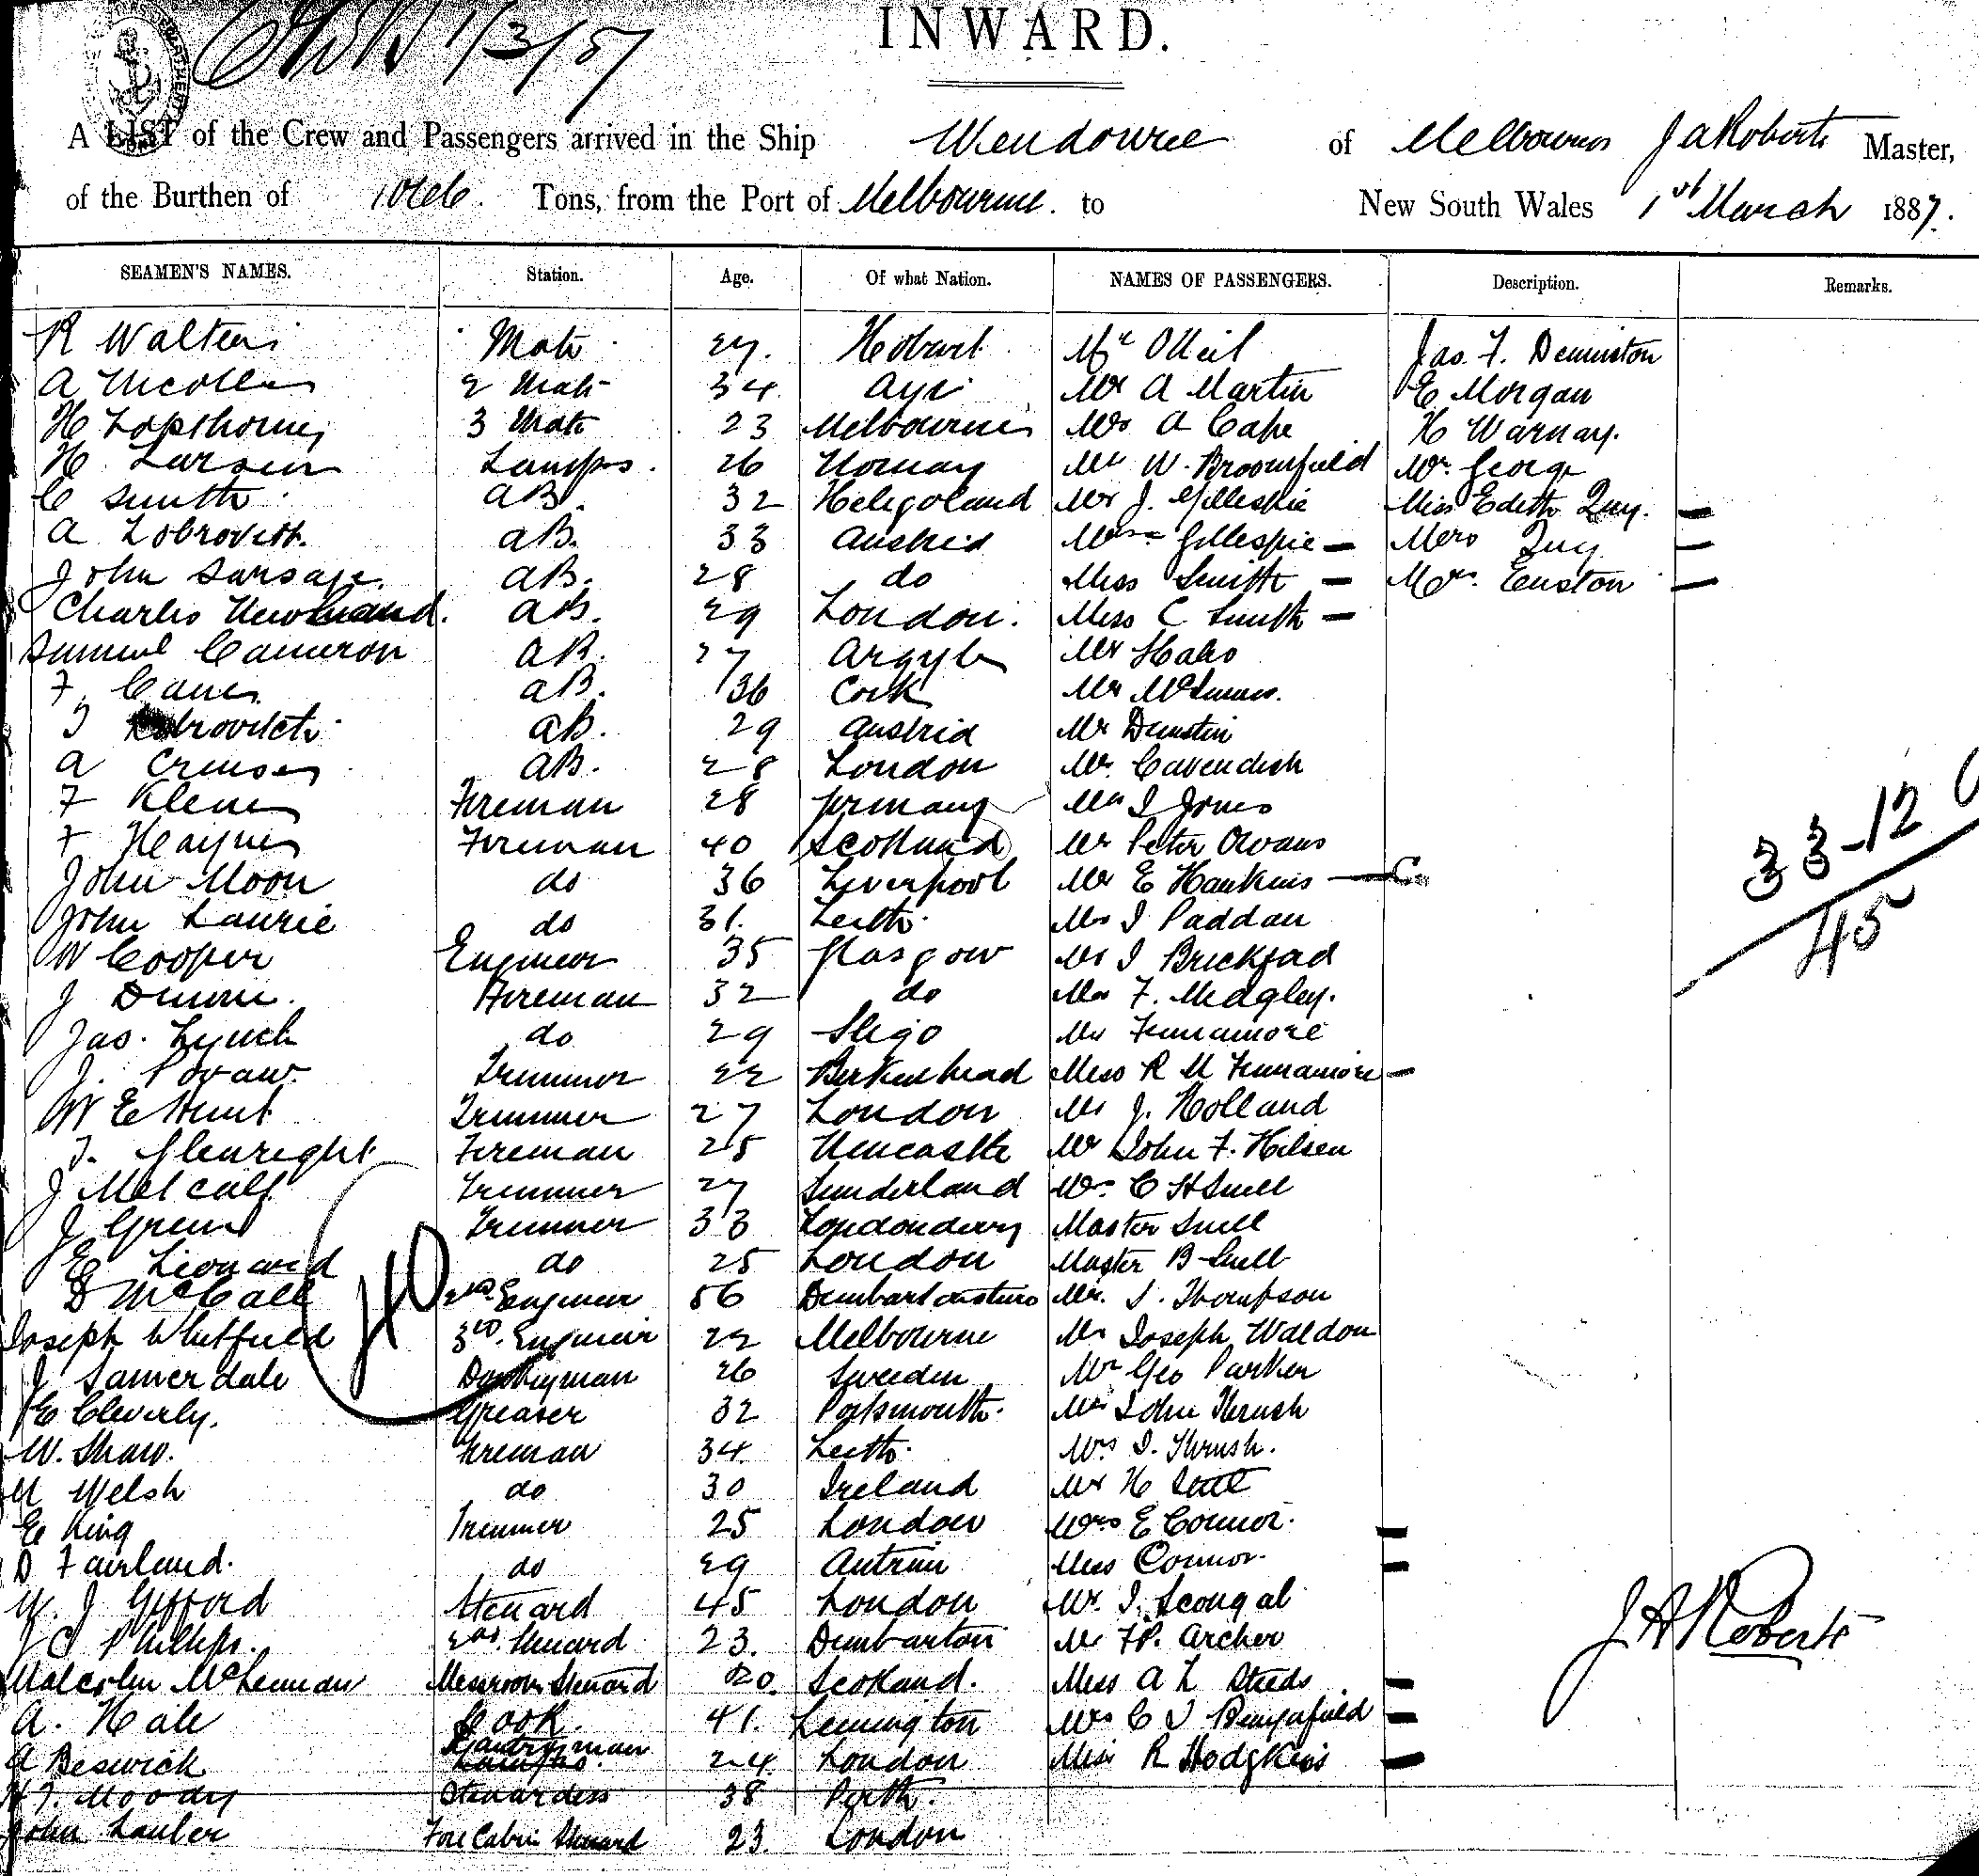 INWARD.
1/3/87
A LIST of the Crew and Passengers arrived in the Ship Wendouree of Melbourne J A Roberts Master,
of the Burthen of Tons, from the Port of Melbourne. to New South Wales 1st March 1887.
SEAMEN'S NAMES. Station. Age. Of what Nation. NAMES OF PASSENGERS. Description. Remarks.
R Walters Mate 27. Hobart Mr O'Neil Jas. F. Denniston
A 2 Mate 34. Ayr Mr A Martin E Morgan
H Lopthorne 3 Mate 23 Melbourne Mr A Cape H Warnay.
H. Larsen Lamps. 26 Norway Mr W. Broomfield Mr. George
C Smith AB. 32 Heligoland Mr J. Gillespie Miss Edith Quy. —
A AB. 33 Austria Mrs Gillespie — Mrs Quy —
John AB. 28 do Miss Smith — Mrs. Euston —
Charles AB. 29 London. Miss C Smith —
Samuel Cameron AB. 27 Argyle Mr Hales
F. AB. 36 Cork Mr McInnes.
AB. 29 Austria Mr Dunstin
A AB. 28 London Mr. Cavendish
F Klein Fireman 28 Germany Mr I Jones
F Haynes Fireman 40 Scotland Mr Peter Owans
33-12
John Moon do 36 Liverpool Mr E Hankins — C.
John Laurie do 31. Leith. Mr I Paddan
45
W Cooper Engineer 35 Glasgow Mr I Brickford
J Fireman 32 do Mr F. Medgley.
Jas. Lynch do 29 Sligo Mr Finnamore
J. Trimmer 22 Birkenhead Miss R M Finnamore —
W E Hunt Trimmer 27 London Mr J. Holland
T. Glenright Fireman 25 Newcastle Mr John F. Hilsen
J Metcalf Trimmer 27 Sunderland Mr. C H Snell
J Green Trimmer 33 Londonderry Master Snell
E Leonard do 25 London Master B Snell
D McCall 2nd Engineer 56 Dumbartonshire Mr. I. Thompson
Joseph Whitfield 3rd Engineer 22 Melbourne Mr Joseph Waldon
J Samerdale Donkeyman 26 Sweden Mr Geo Parker
E Cleverly. Greaser 32 Portsmouth. Mr John Thrush
W. Shaw. Fireman 34. Leith. Mrs I. Thrush.
M Welsh do 30 Ireland Mr H
E King Trimmer 25 London Mrs E Connor. —
D Fairland. do 29 Antrim Miss Connor. —
W. J Gifford Steward 45 London Mr. I. Scougal
J C Phillips. 2nd Steward 23. Dumbarton Mr F.P. Archer
J A Roberts
Malcolm McLennan Messroom Steward 20. Scotland. Miss A L Steeds —
A. Hale Cook. 41. Lemington Mrs C J —
A Beswick Pantryman 24. London Miss R Hodgkins —
H J. Moody Stewardess 38 Perth.
John Lauber Fore Cabin Steward 23. London